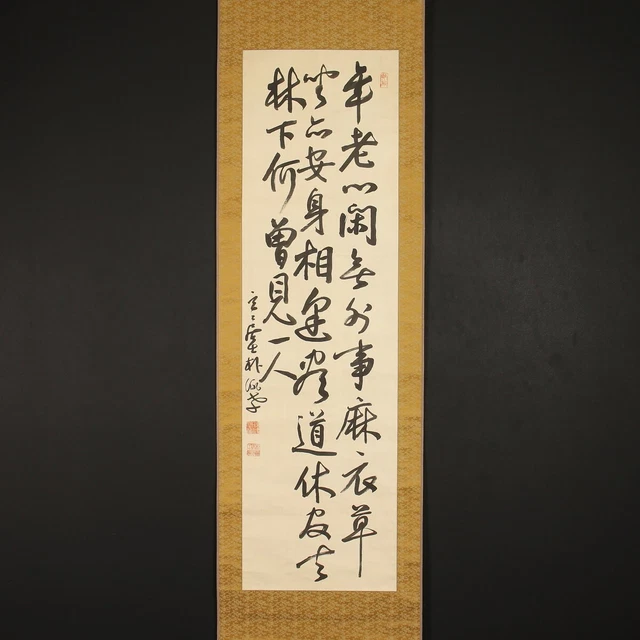 年老心閑無外事麻衣草
坐亦安身相逢盡道休官去
林下何曾見一人